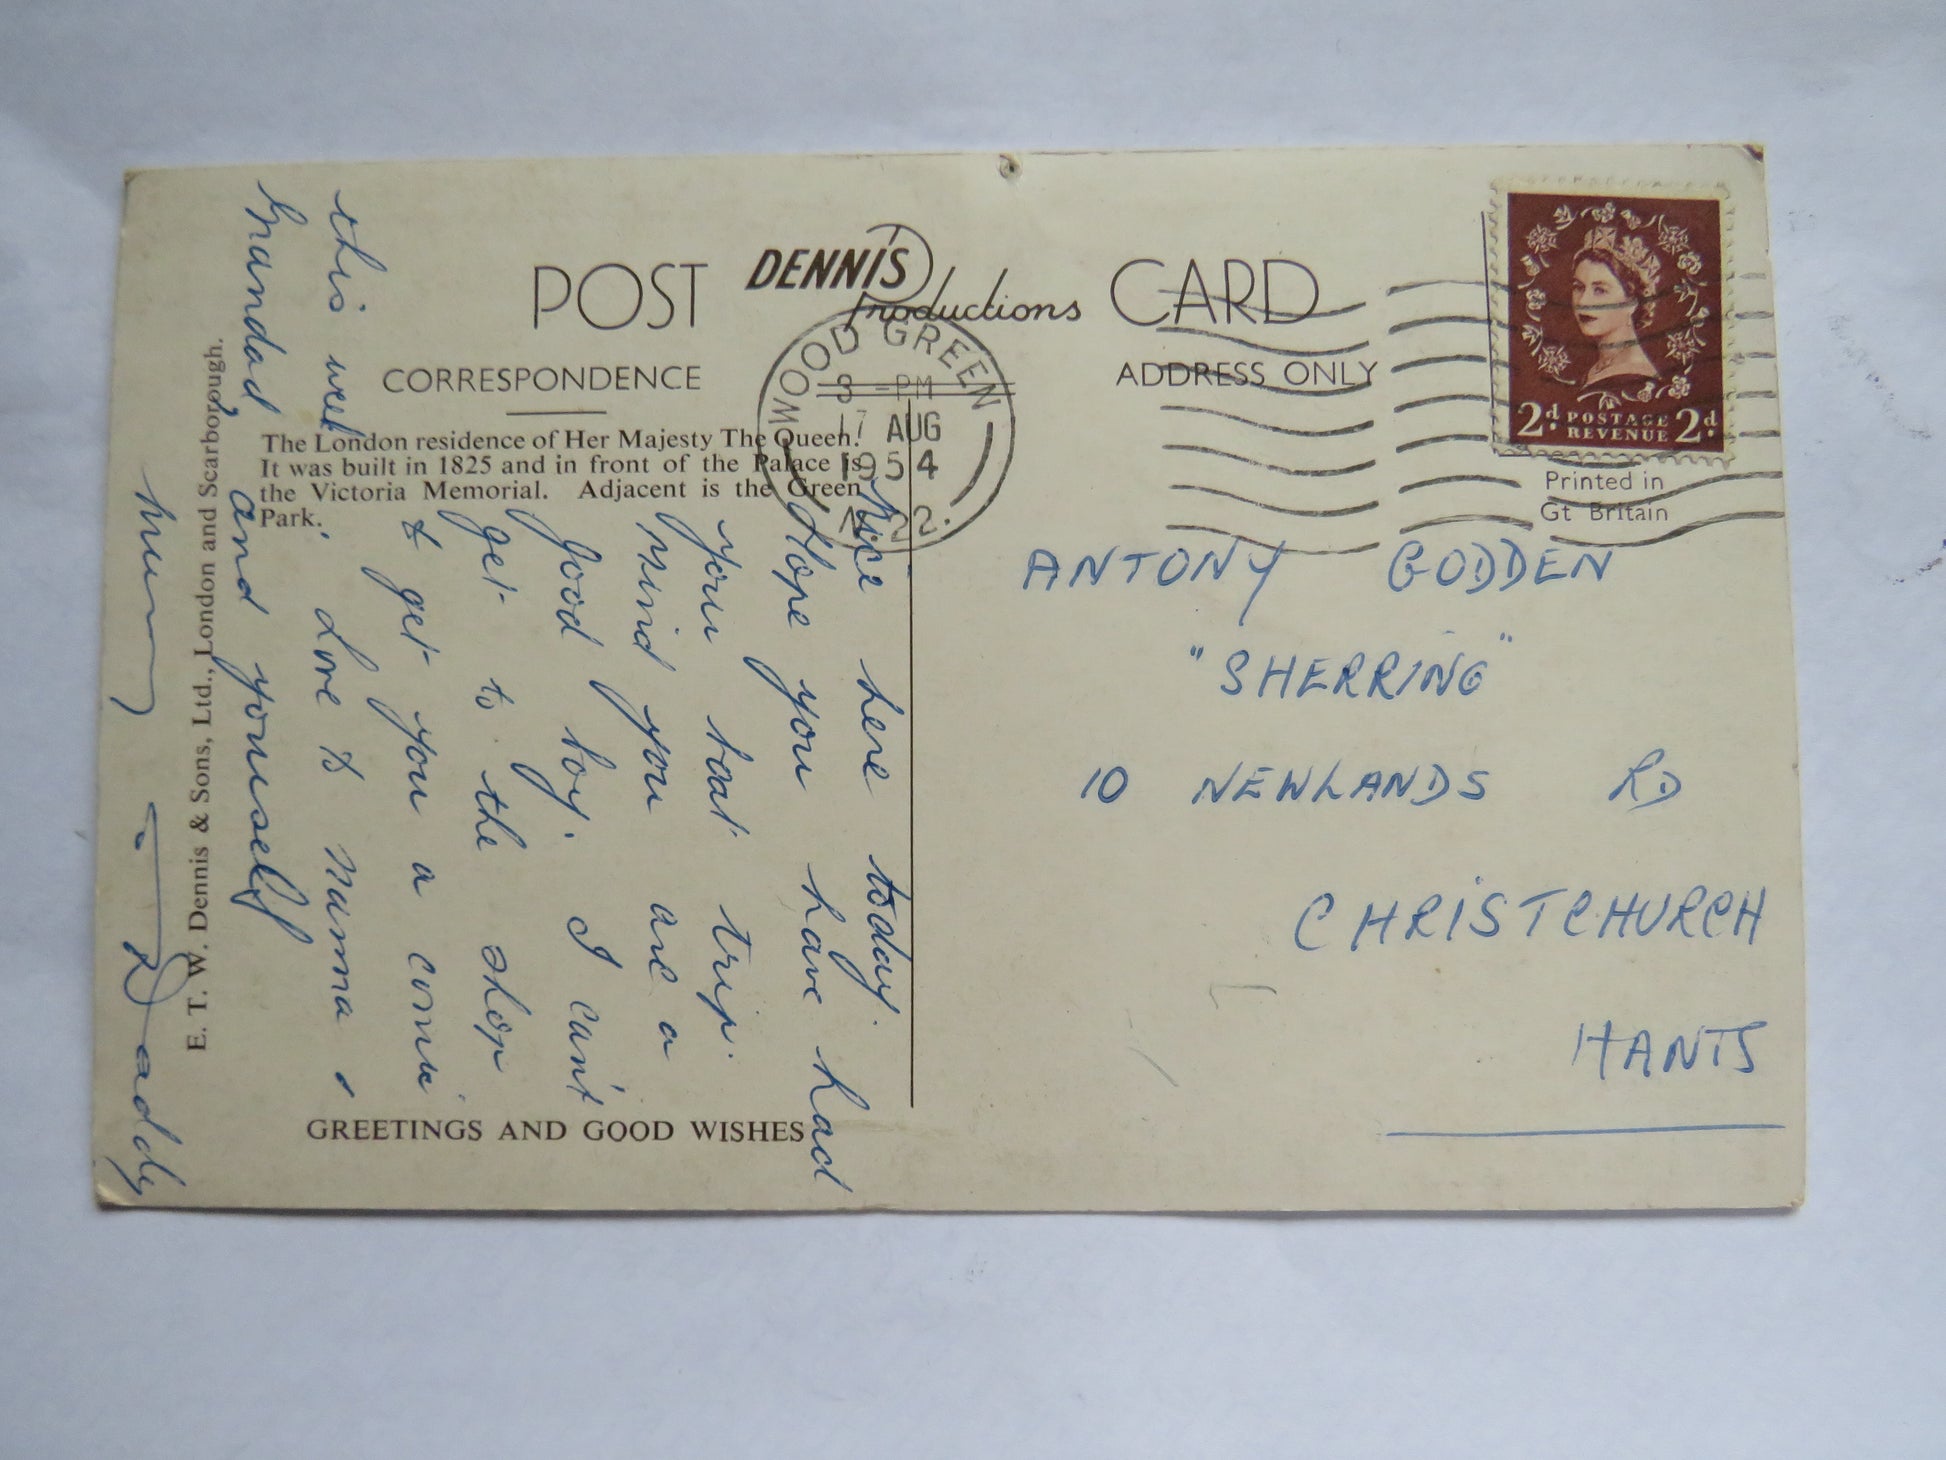 POST DENNIS Productions CARD
CORRESPONDENCE
ADDRESS ONLY
WOOD GREEN
3 - PM
17 AUG
1954
N.22.
2d. POSTAGE REVENUE 2d.
Printed in
Gt Britain
The London residence of Her Majesty The Queen.
It was built in 1825 and in front of the Palace is
the Victoria Memorial. Adjacent is the Green
Park.
Nice here today.
Hope you have had
your boat trip.
Mind you are a
good boy. I can't
get to the shop
& get you a comic
this week. Love to Mamma,
Grandad and yourself
Mummy - Daddy
ANTONY GODDEN
"SHERRING"
10 NEWLANDS RD
CHRISTCHURCH
HANTS
GREETINGS AND GOOD WISHES
E. T. W. Dennis & Sons, Ltd., London and Scarborough.